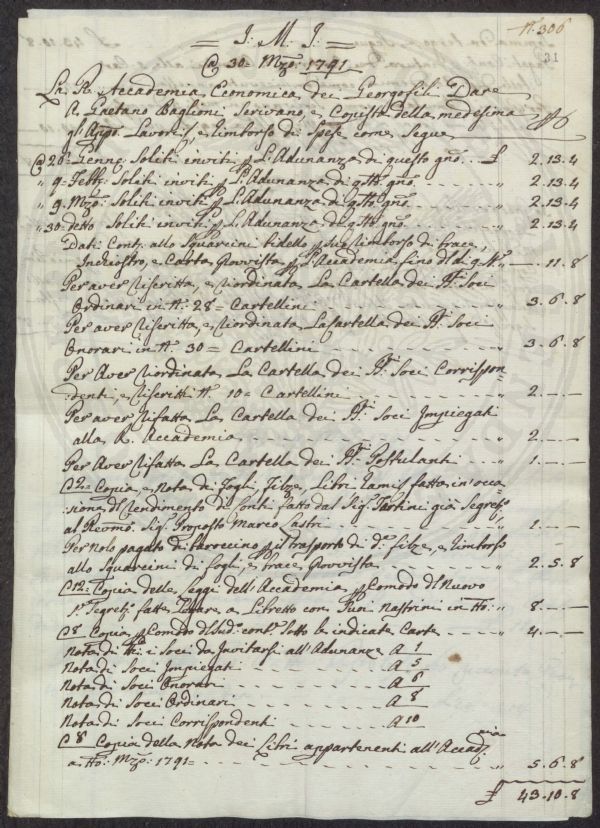 N. 306
31
= J: M: J: =
@ 30= Mzo: 1791
La R. Accademia Economica dei Georgofili Dare
A Gaetano Baglioni Scrivano, e Copista della medesima
p. Appo. Lavori, e rimborso di Spese come Segue
@ 28= Genno: Soliti inviti p. L'Adunanza di questo gno. £ 2.13.4
" 9= Febb: Soliti inviti p. L'Adunanza di qto. gno. " 2.13.4
" 9. Mzo: Soliti inviti p. L'Adunanza di qto. gno. " 2.13.4
" 30= detto Soliti inviti p. L'Adunanza di qto. gno. " 2.13.4
Dati Conti allo Squarcini bidello p. Suo rimborso di brace,
Inchiostro, e Carta provvista p. L'Accademia fino a di " -.11.8
Per aver riscritta, e riordinata La Cartella dei SSri. Soci
Ordinari in No. 28= Cartellini " 3.6.8
Per aver riscritta, e riordinata La Cartella dei SSri. Soci
Onorari in No. 30= Cartellini " 3.6.8
Per Aver riordinata La Cartella dei SSri. Soci Corrispon=
denti, e riscritti No. 10= Cartellini " 2.-.-
Per aver rifatta La Cartella dei SSri. Soci Impiegati
alla R. Accademia " 2.-.-
Per Aver rifatta La Cartella dei SSri. Postulanti " 1.-.-
C 2= Copia, e Nota di Fogli, Filze, Libri Eamis fatta in occa
sione di Rendimento di Conti fatto dal Sig. Tartini già Segreto.
al Revmo. Sig. Proposto Marco Lastri " 1.-.-
Per Nolo pagato di barroccino p. il trasporto di de. filze, e rimborso
allo Squarcini di fogli, e brace provvista " 2.5.8
C 12= Copia delle Leggi dell'Accademia p. Comodo del Nuovo
Sr. Segreto. fatte Legare a Libretto con Suoi Nastrini in tto. " 8.-.-
C 8 Copia p. Comodo del Sudo. conte. Sotto le indicate Carte " 4.-.-
Nota di tti: i Soci da Invitarsi all'Adunanza A 1
Nota di Soci Impiegati A 5
Nota di Soci Onorari A 6
Nota di Soci Ordinari A 8
Nota di Soci Corrispondenti A 10
C 8 Copia della Nota dei Libri appartenenti all'Accadmia
a tto: Mzo: 1791= " 5.6.8
£ 43.10.8